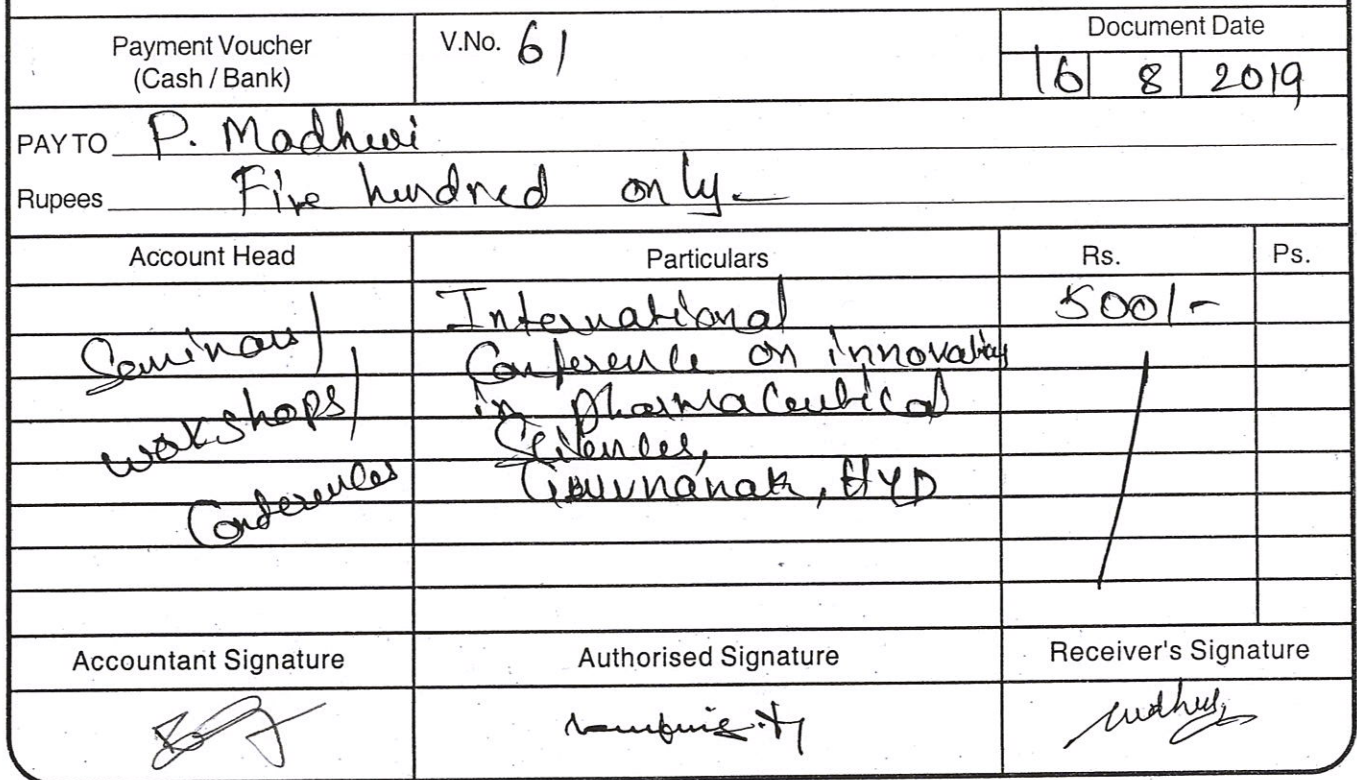 Payment Voucher
(Cash / Bank)
V.No. 61
Document Date
16 8 2019
PAY TO P. Madhuri
Rupees Five hundred only
Account Head
Particulars
Rs.
Ps.
Seminars/
workshops/
Conferences
International
Conference on innovations
in pharmaceutical
Sciences,
Gurunanak, HYD
500/-
Accountant Signature
Authorised Signature
Receiver's Signature